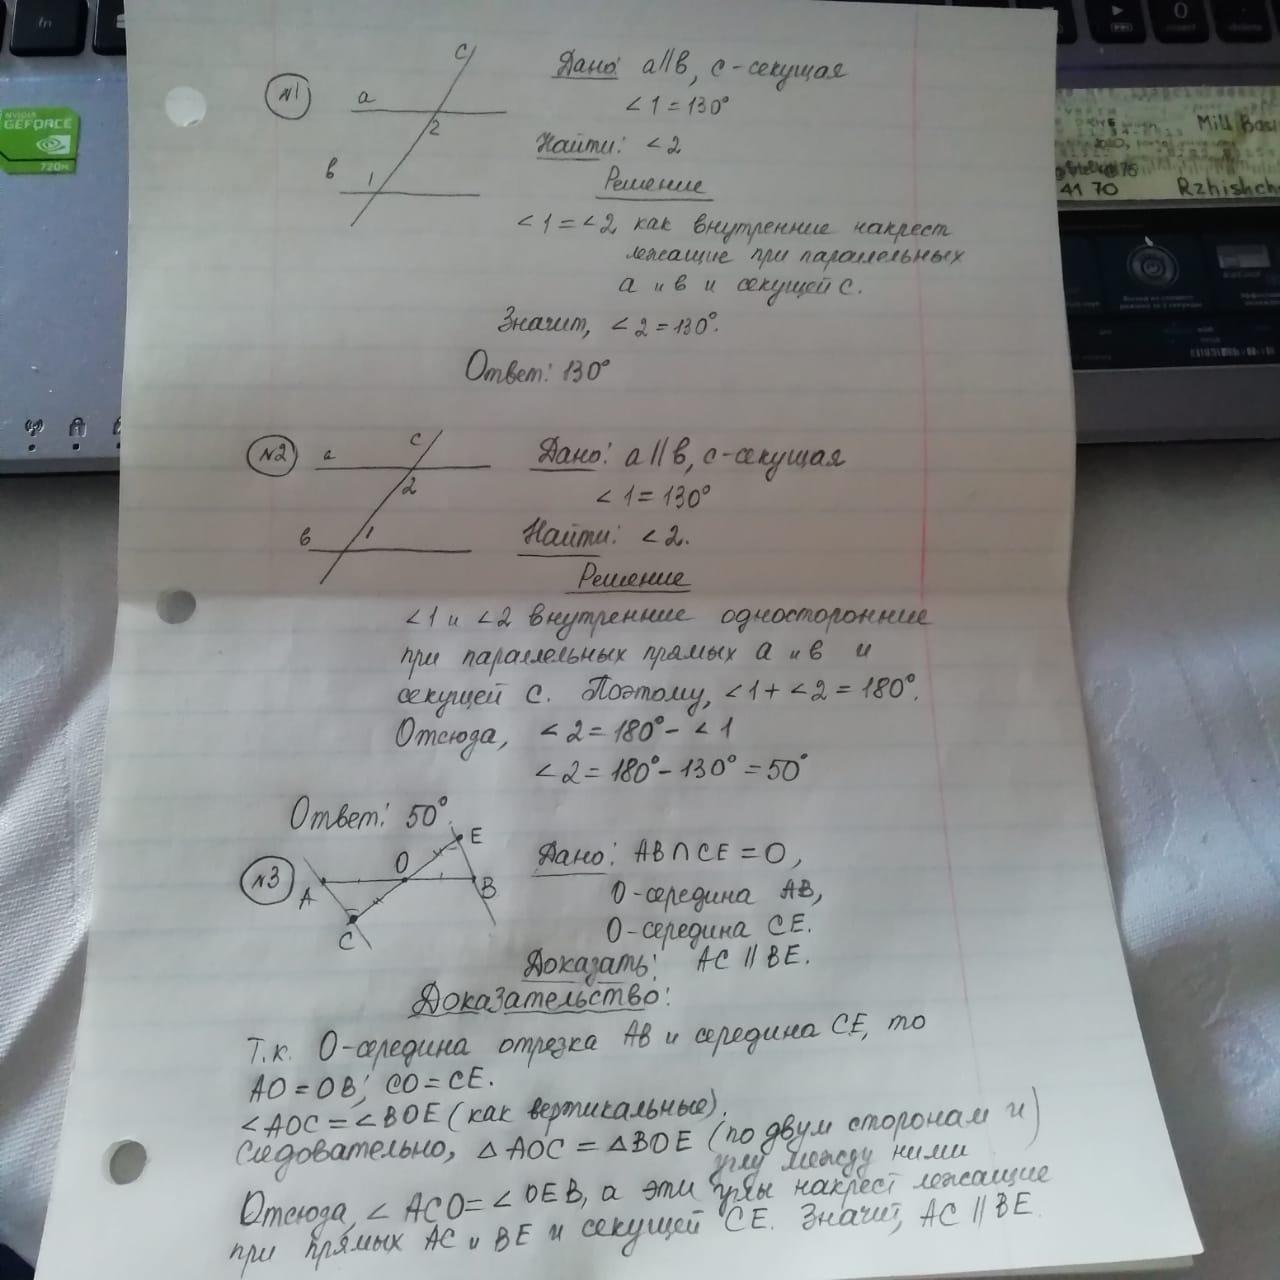 fn
NVIDIA
GEFORCE
720M
Mill Bas
41 70
Rzhishch
№1
a
b
c
1
2
Дано: a∥b, c-секущая
∠1=130°
Найти: ∠2
Решение
∠1=∠2 как внутренние накрест
лежащие при параллельных
a и b и секущей c.
Значит, ∠2=130°.
Ответ: 130°
№2
a
b
c
1
2
Дано: a∥b, c-секущая
∠1=130°
Найти: ∠2.
Решение
∠1 и ∠2 внутренние односторонние
при параллельных прямых a и b и
секущей c. Поэтому, ∠1+∠2=180°.
Отсюда, ∠2=180°-∠1
∠2=180°-130°=50°
Ответ: 50°.
№3
A
O
E
B
C
Дано: AB∩CE=O,
O-середина AB,
O-середина CE.
Доказать: AC∥BE.
Доказательство:
Т.к. O-середина отрезка AB и середина CE, то
AO=OB; CO=CE.
∠AOC=∠BOE (как вертикальные).
Следовательно, △AOC=△BOE (по двум сторонам и)
углу между ними
Отсюда, ∠ACO=∠OEB, а эти углы накрест лежащие
при прямых AC и BE и секущей CE. Значит, AC∥BE.